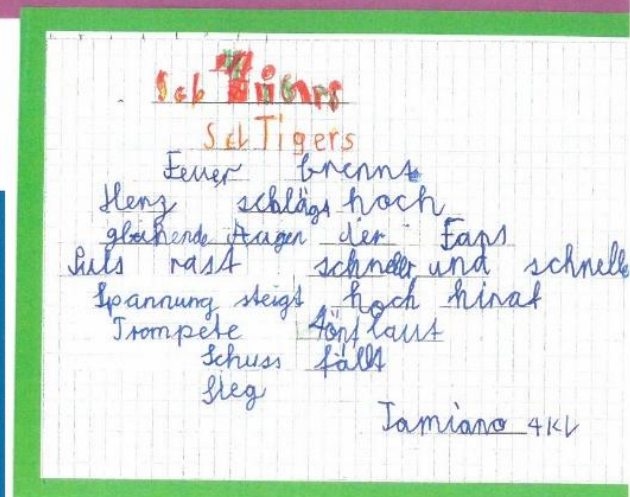 Scb Tigers
Scl Tigers
Feuer brennt
Herz schlägt hoch
glühende Augen der Fans
Puls rast schneller und schnelle
Spannung steigt hoch hinaf
Trompete tönt laut
Schuss fällt
Sieg
Tamiano 4Kl